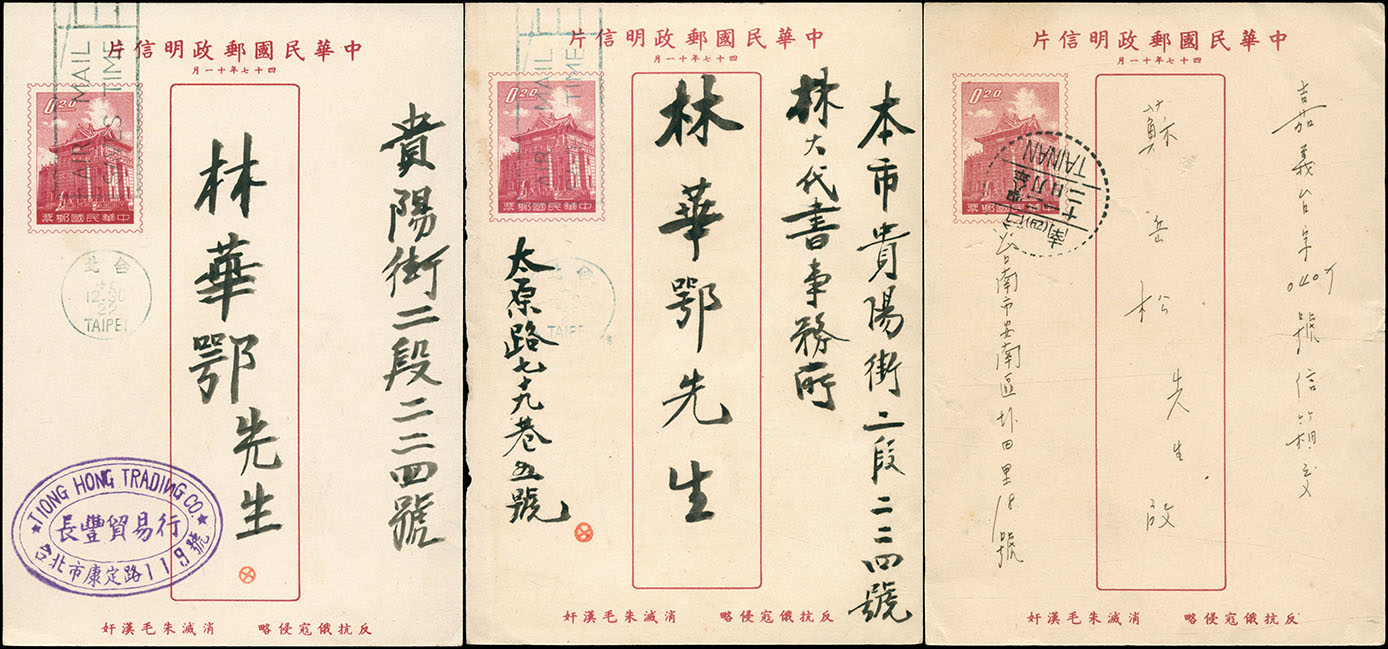 中華民國郵政明信片
四十七年十一月
AIR MAIL
SAVES TIME
0.20
中華民國郵票
貴陽街二段二二四號
林華鄂先生
台北
12.30
TAIPEI
TIONG HONG TRADING CO.
長豐貿易行
台北市康定路119號
反抗俄寇侵略 消滅朱毛漢奸
中華民國郵政明信片
四十七年十一月
AIR MAIL
TIME
0.20
中華民國郵票
本市貴陽街二段二二四號
林大代書事務所
林華鄂先生
太原路七十九巷五號
TAIPEI
反抗俄寇侵略 消滅朱毛漢奸
中華民國郵政明信片
四十七年十一月
0.20
中華民國郵票
TAINAN
嘉義台字
號信箱
蘇岳松先生啟
台南市安南區
里18號
反抗俄寇侵略 消滅朱毛漢奸